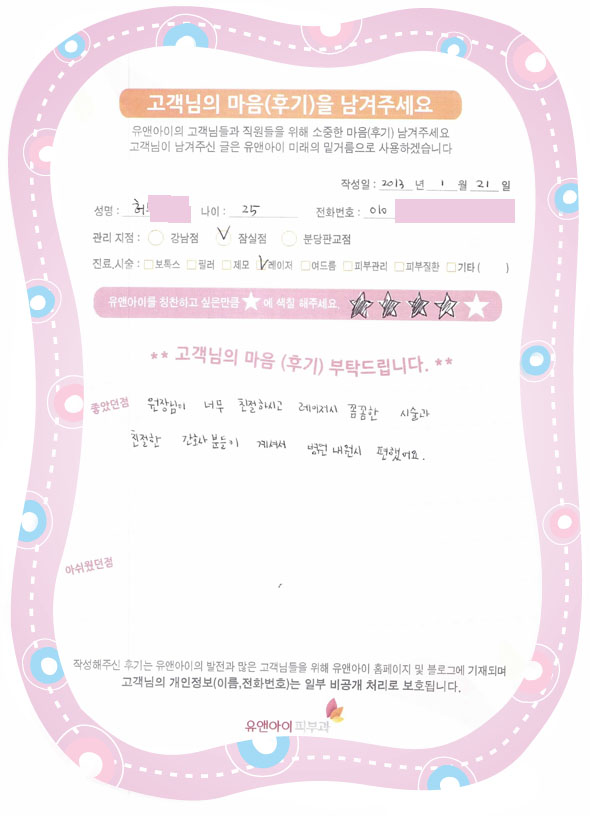 고객님의 마음(후기)을 남겨주세요
유앤아이의 고객님들과 직원들을 위해 소중한 마음(후기) 남겨주세요
고객님이 남겨주신 글은 유앤아이 미래의 밑거름으로 사용하겠습니다
작성일 : 2013 년 1 월 21 일
성명 : 허 나이 : 25 전화번호 : 010
관리 지점 : 강남점 잠실점 분당판교점
진료,시술 : 보톡스 필러 제모 레이저 여드름 피부관리 피부질환 기타 ( )
유앤아이를 칭찬하고 싶은만큼 ★ 에 색칠 해주세요.
** 고객님의 마음 (후기) 부탁드립니다. **
좋았던점 원장님이 너무 친절하시고 레이저시 꼼꼼한 시술과
친절한 간호사 분들이 계셔서 병원 내원시 편했어요.
아쉬웠던점
작성해주신 후기는 유앤아이의 발전과 많은 고객님들을 위해 유앤아이 홈페이지 및 블로그에 기재되며
고객님의 개인정보(이름,전화번호)는 일부 비공개 처리로 보호됩니다.
유앤아이피부과